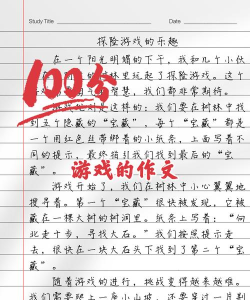 Study Title
Date
探险游戏的乐趣
在一个阳光明媚的下午，我和几个小伙
树林里玩起了探险游戏。这个
智慧，我们都非常期待。
是这样的：我们要在树林中找
到五个隐藏的“宝藏”，每个“宝藏”都是
一个用红色丝带绑着的小纸条，上面写着不
同的提示，最终指引我们找到最后的“宝
藏”。
游戏开始了，我们在树林中小心翼翼地
搜寻着。第一个“宝藏”很快被发现，它被
藏在一棵大树的树洞里。纸条上写着：“向
北走十步，寻找大石。”我们按照提示走
去，很快在一块大石头下找到了第二个“宝
藏”。
随着游戏的进行，挑战变得越来越难。
我们需要爬上一座小山坡，还要穿过一片
100分
游戏的作文